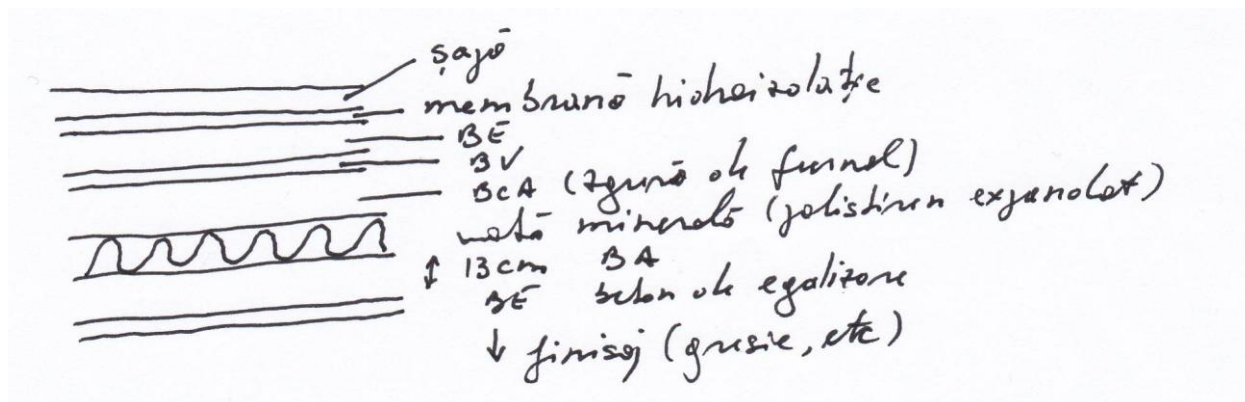 șapă
membrană hidroizolație
BE
BV
BCA (zgură de furnal)
vată minerală (polistiren expandat)
13 cm BA
BE beton de egalizare
finisaj (gresie, etc)